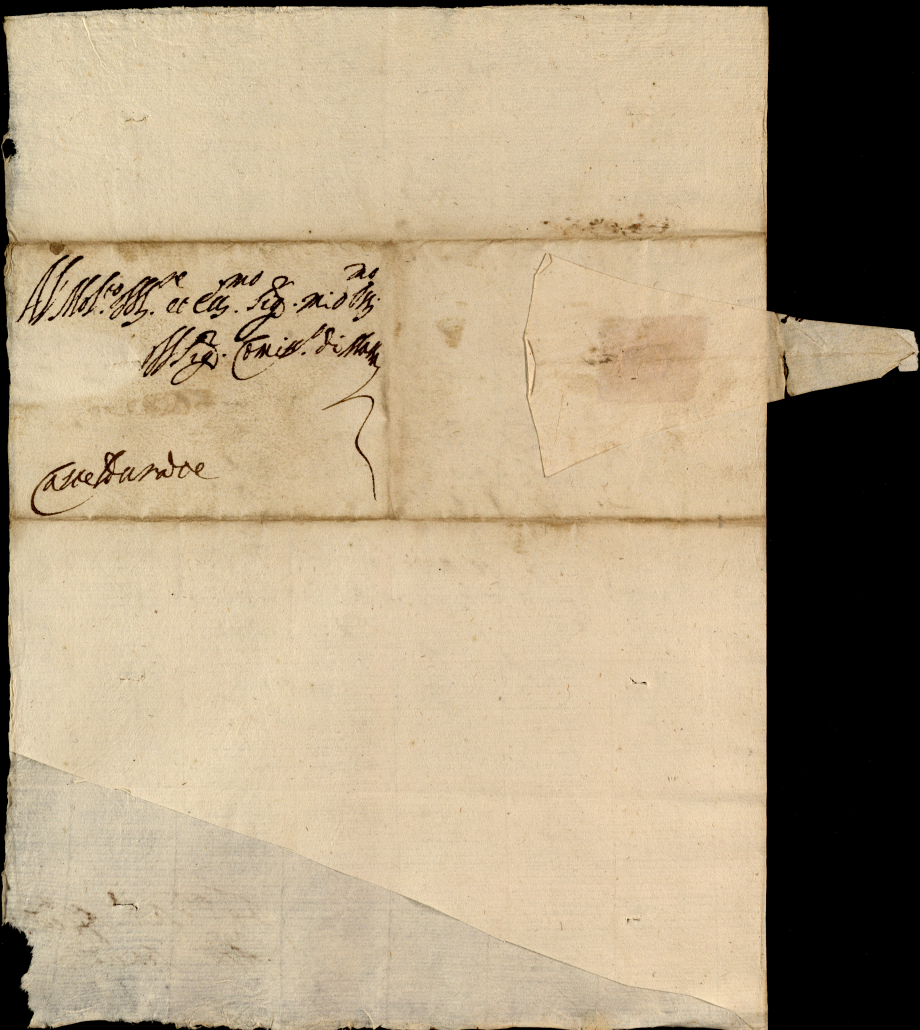 Al Molto Ill.re et Ecc.mo Sig.r mio Oss.mo
Il Sig.r Comiss.o di Massa
Casteldurante